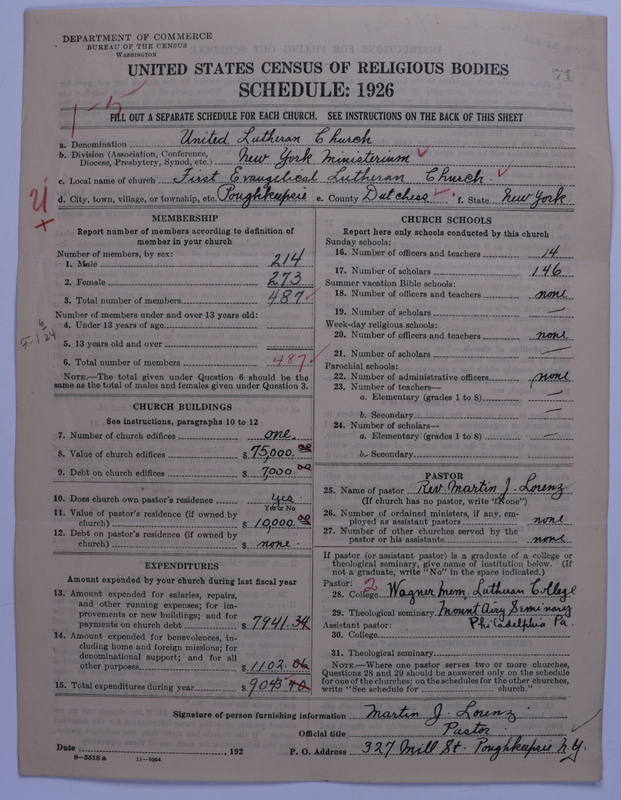 DEPARTMENT OF COMMERCE
BUREAU OF THE CENSUS
WASHINGTON
UNITED STATES CENSUS OF RELIGIOUS BODIES
SCHEDULE: 1926
FILL OUT A SEPARATE SCHEDULE FOR EACH CHURCH. SEE INSTRUCTIONS ON THE BACK OF THIS SHEET
a. Denomination United Lutheran Church
b. Division (Association, Conference, Diocese, Presbytery, Synod, etc.) New York Ministerium
c. Local name of church First Evangelical Lutheran Church
d. City, town, village, or township, etc. Poughkeepsie e. County Dutchess f. State New York
MEMBERSHIP
Report number of members according to definition of
member in your church
Number of members, by sex:
1. Male 214
2. Female 273
3. Total number of members 487
Number of members under and over 13 years old:
4. Under 13 years of age
5. 13 years old and over
6. Total number of members 487
NOTE.—The total given under Question 6 should be the
same as the total of males and females given under Question 3.
CHURCH BUILDINGS
See instructions, paragraphs 10 to 12
7. Number of church edifices one.
8. Value of church edifices $ 75,000.00
9. Debt on church edifices $ 7000.00
10. Does church own pastor's residence yes
Yes or No
11. Value of pastor's residence (if owned by
church) $ 10,000.00
12. Debt on pastor's residence (if owned by
church) $ none.
EXPENDITURES
Amount expended by your church during last fiscal year
13. Amount expended for salaries, repairs,
and other running expenses; for im-
provements or new buildings; and for
payments on church debt $ 7941.34
14. Amount expended for benevolences, in-
cluding home and foreign missions; for
denominational support; and for all
other purposes $ 1102.06
15. Total expenditures during year $ 9043.40
CHURCH SCHOOLS
Report here only schools conducted by this church
Sunday schools:
16. Number of officers and teachers 14
17. Number of scholars 146
Summer vacation Bible schools:
18. Number of officers and teachers none
19. Number of scholars —
Week-day religious schools:
20. Number of officers and teachers none
21. Number of scholars —
Parochial schools:
22. Number of administrative officers none
23. Number of teachers—
a. Elementary (grades 1 to 8) —
b. Secondary —
24. Number of scholars—
a. Elementary (grades 1 to 8) —
b. Secondary
PASTOR
25. Name of pastor Rev. Martin J. Lorenz
(If church has no pastor, write "None")
26. Number of ordained ministers, if any, em-
ployed as assistant pastors none
27. Number of other churches served by the
pastor or his assistants none
If pastor (or assistant pastor) is a graduate of a college or
theological seminary, give name of institution below. (If
not a graduate, write "No" in the space indicated.)
Pastor: 2
28. College Wagner Mem. Lutheran College
29. Theological seminary Mount Airy Seminary
Assistant pastor: Philadelphia Pa.
30. College
31. Theological seminary
NOTE.—Where one pastor serves two or more churches,
Questions 28 and 29 should be answered only on the schedule
for one of the churches; on the schedules for the other churches,
write "See schedule for church."
Signature of person furnishing information Martin J. Lorenz
Official title Pastor
Date , 192 P. O. Address 327 Mill St. Poughkeepsie N.Y.
8—5518 a 11—9064